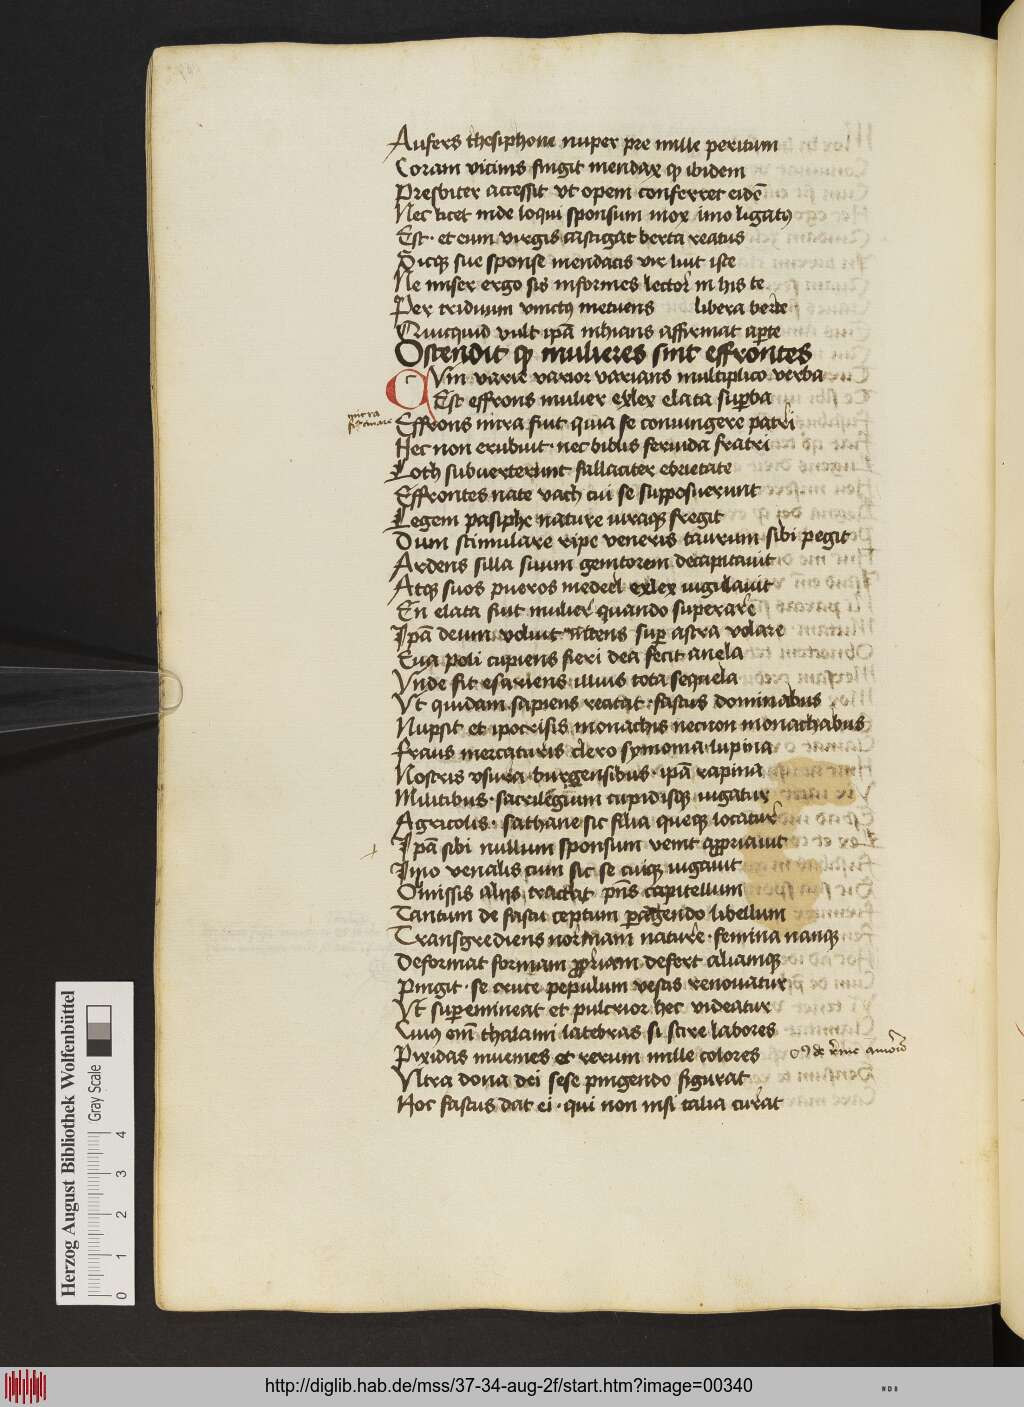 Aufers thesiphone nuper pre mille peritum
Coram vicinis fingit mendax ꝙ ibidem
Presbiter accessit vt opem conferret eidē
Nec licet inde loqui sponsum mox imo ligatꝰ
Est · et eum virgis castigat berta reatus
Dicqꝫ sue sponse mendacis vir luit iste
Ne miser ergo sis informes lector in his te
Per triduum vinctꝰ metuens libera berte
Quicquid vult ipā inhians affirmat aperte
Ostendit ꝙ mulieres sint effrontes
CVm varie varior varians multiplico verba
Est effrons mulier exlex elata suꝑba
mirra
Effrons mirra fuit quia se coniungere patri
Hec non erubuit · nec biblis feruida fratri
Loth subuerterunt fallaciter ebrietate
Effrontes nate vach cui se supposuerunt
Legem pasiphe nature iuraqꝫ fregit
Dum stimulare ripe veneris taurum sibi pegit
Ardens silla suum genitorem decapitauit
Atqꝫ suos pueros medea exlex iugulauit
En elata fuit mulier quando superare
Ipā deum voluit nitens suꝑ astra volare
Eua poli cupiens fieri dea fecit anela
Vnde fit esuriens illius tota sequela
Vt quidam sapiens recitat · fastus dominabus
Nupsit et ipocrisis monachis necnon monachabus
Fraus mercaturis clero symonia lupina
Nostris vsura burgensibus · ipā rapina
Militibus · sacrilegium cupidisqꝫ iugatur
Agricolis · sathane sic filia queqꝫ locatur
Ipā sibi nullum sponsum venit aꝓpriauit
Imo venalis cum sic se cuiqꝫ iugauit
Omissis alijs tractat pn̄s capitellum
Tantum de fastu ceptum peragendo libellum
Transgrediens normam nature · femina nanqꝫ
Deformat formam ꝓpriam defert aliamqꝫ
Pingit · se cruce pepulum vestis renouatur
Vt superemineat et pulcrior hec videatur
Cuiꝰ em̄ thalami latebras si scire labores
Pixidas inuenies et rerum mille colores
Vltra dona dei sese pingendo figurat
Hoc fastus dat ei · qui non nisi talia curat
Herzog August Bibliothek Wolfenbüttel
Gray Scale
0 1 2 3 4
http://diglib.hab.de/mss/37-34-aug-2f/start.htm?image=00340